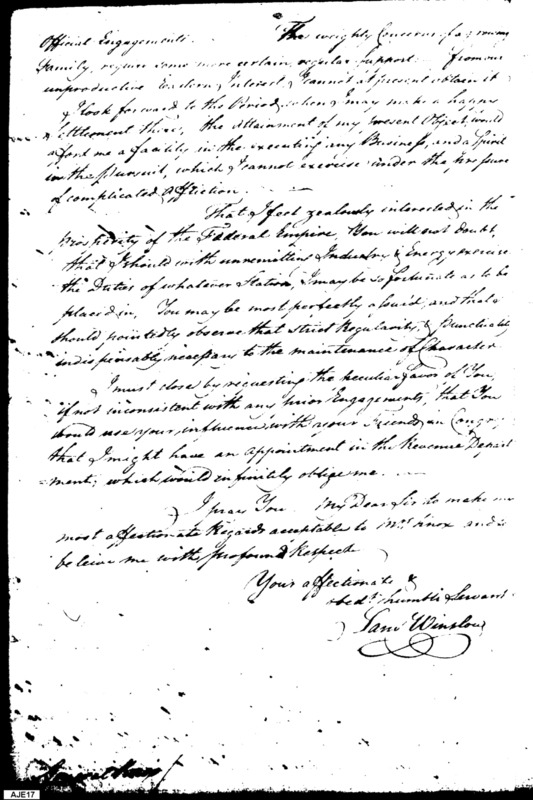 Official Engagements. The weighty Concerns of a growing
family, require some more certain, regular support from our
unproductive Eastern Interest, I cannot at present obtain it
& I look forward to the Period, when I may make a happy
settlement there, the attainment of my present Object, would
afford me a facility in the executing any Business, and a Spirit
in the Pursuit, which I cannot exercise under the pressure
of complicated affliction.
That I feel zealously interested in the
Prosperity of the Federal Empire You will not doubt,
that I should with unremitting Industry & Energy exercise
the Duties of whatever Station, I may be so fortunate as to be
placed in, You may be most perfectly assured, and that I
should pointedly observe that strict Regularity & Punctuality
indispensably necessary to the maintenance of Character
I must close by requesting the peculiar favor of You,
if not inconsistent with any prior Engagements, that You
would use your influence with your Friends in Congress
that I might have an appointment in the Revenue Depart
ment, which would infinitely oblige me.
I pray You My Dear Sir to make my
most affectionate Regards acceptable to Mrs Knox and to
beleive me with profound Respect
Your affectionate &
obedt humble Servant
Sam Winslow
General Knox
AJE17